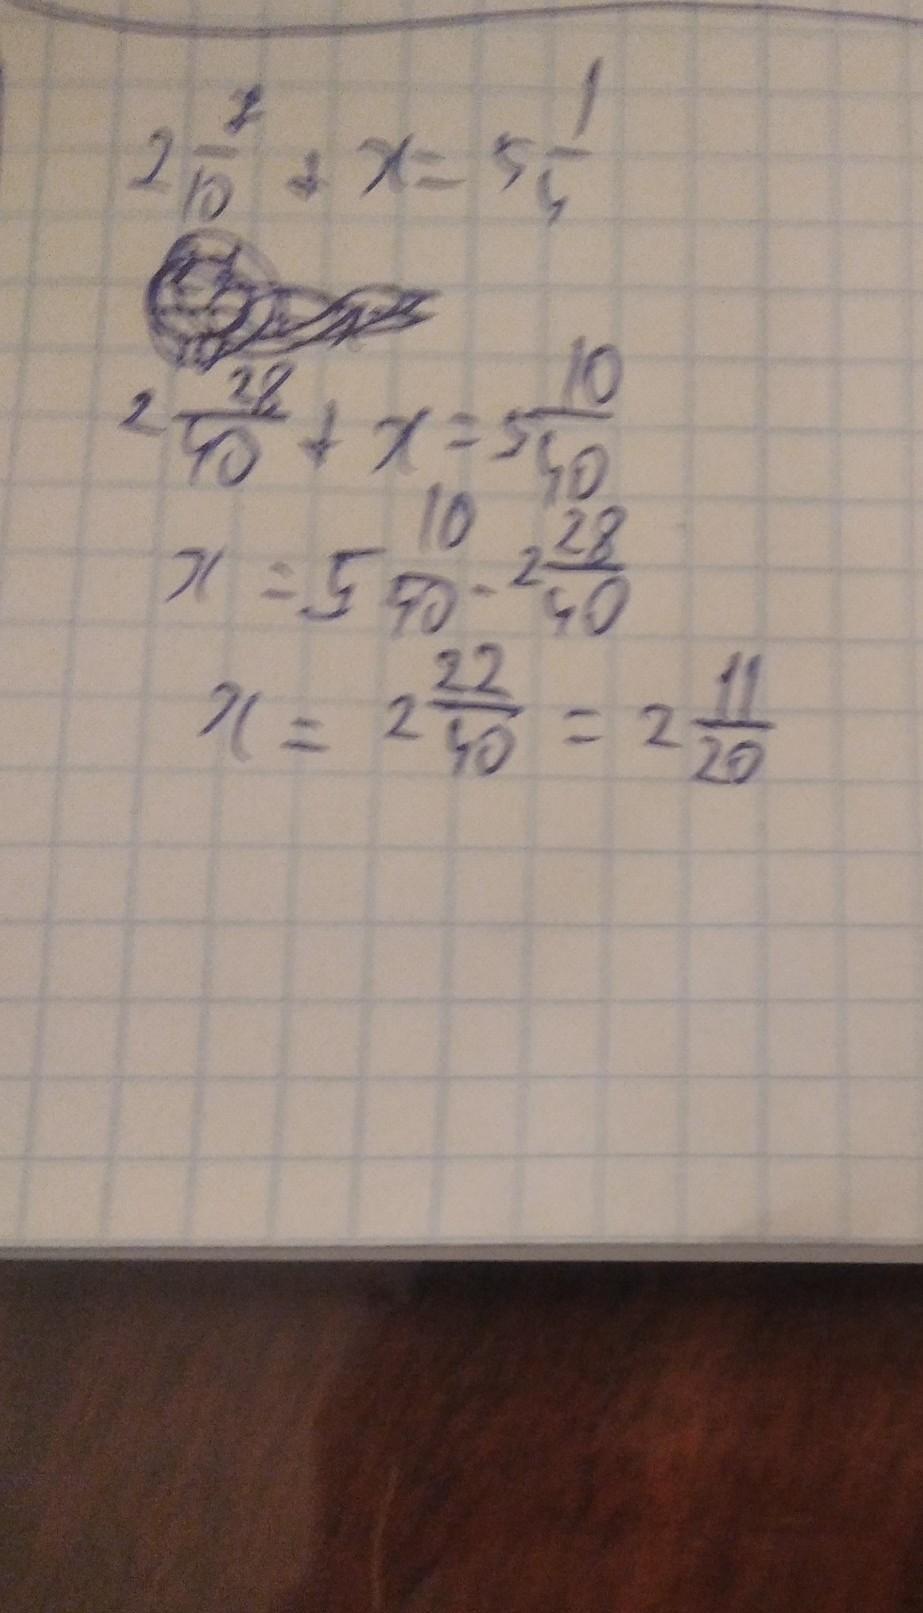 2 7/10 + x = 5 1/4
2 28/40 + x = 5 10/40
x = 5 10/40 - 2 28/40
x = 2 22/40 = 2 11/20